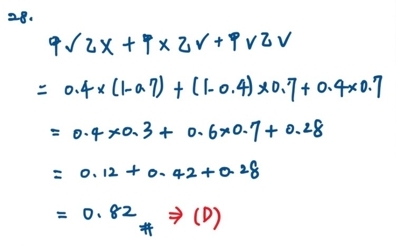 28.
甲√乙× + 甲×乙√ + 甲√乙√
= 0.4×(1-0.7) + (1-0.4)×0.7 + 0.4×0.7
= 0.4×0.3 + 0.6×0.7 + 0.28
= 0.12 + 0.42 + 0.28
= 0.82 # ⇒ (D)